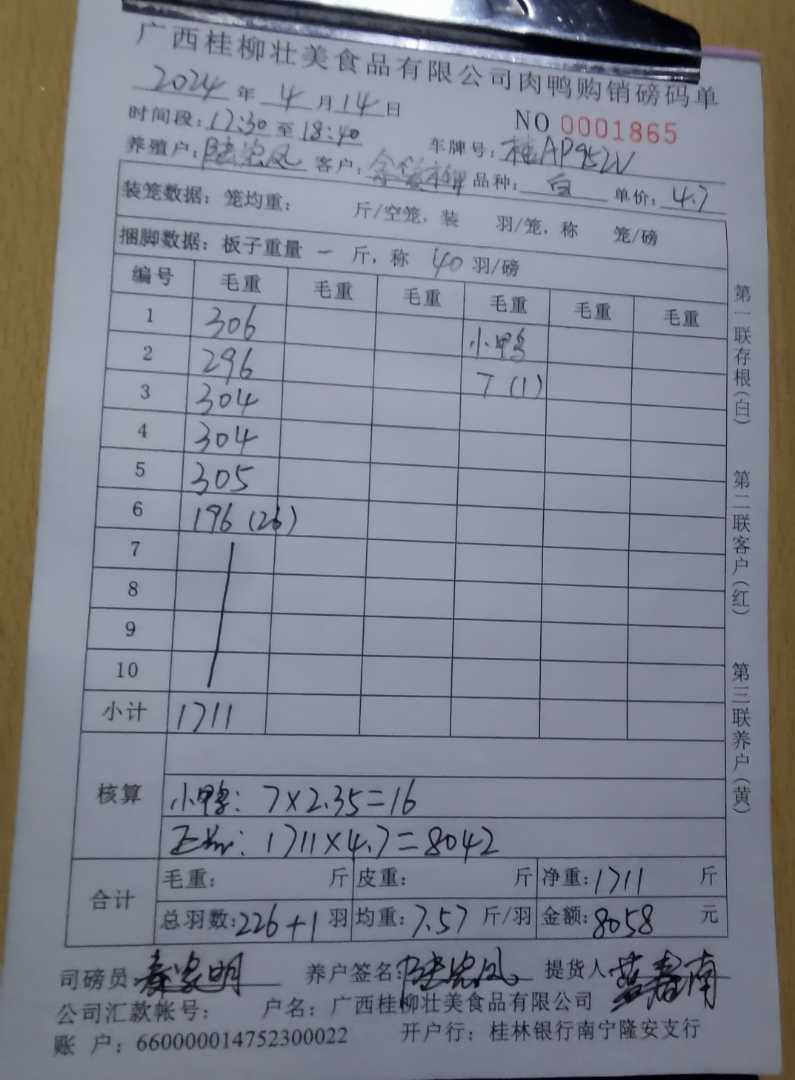 广西桂柳壮美食品有限公司肉鸭购销磅码单
2024 年 4 月 14 日 NO 0001865
时间段: 17:30 至 18:40 车牌号: 桂AP952N
养殖户: 陆宏凤 客户: 品种: 白 单价: 4.7
装笼数据: 笼均重: 斤/空笼, 装 羽/笼, 称 笼/磅
捆脚数据: 板子重量 一 斤, 称 40 羽/磅
编号 毛重 毛重 毛重 毛重 毛重 毛重
1 306 小鸭
2 296 7 (1)
3 304
4 304
5 305
6 196 (26)
7
8
9
10
小计 1711
核算
小鸭: 7×2.35=16
正常: 1711×4.7=8042
合计
毛重: 斤 皮重: 斤 净重: 1711 斤
总羽数: 226+1 羽 均重: 7.57 斤/羽 金额: 8058 元
司磅员 养户签名: 陆宏凤 提货人
公司汇款帐号: 户名: 广西桂柳壮美食品有限公司
账 户: 660000014752300022 开户行: 桂林银行南宁隆安支行
第一联存根(白) 第二联客户(红) 第三联养户(黄)